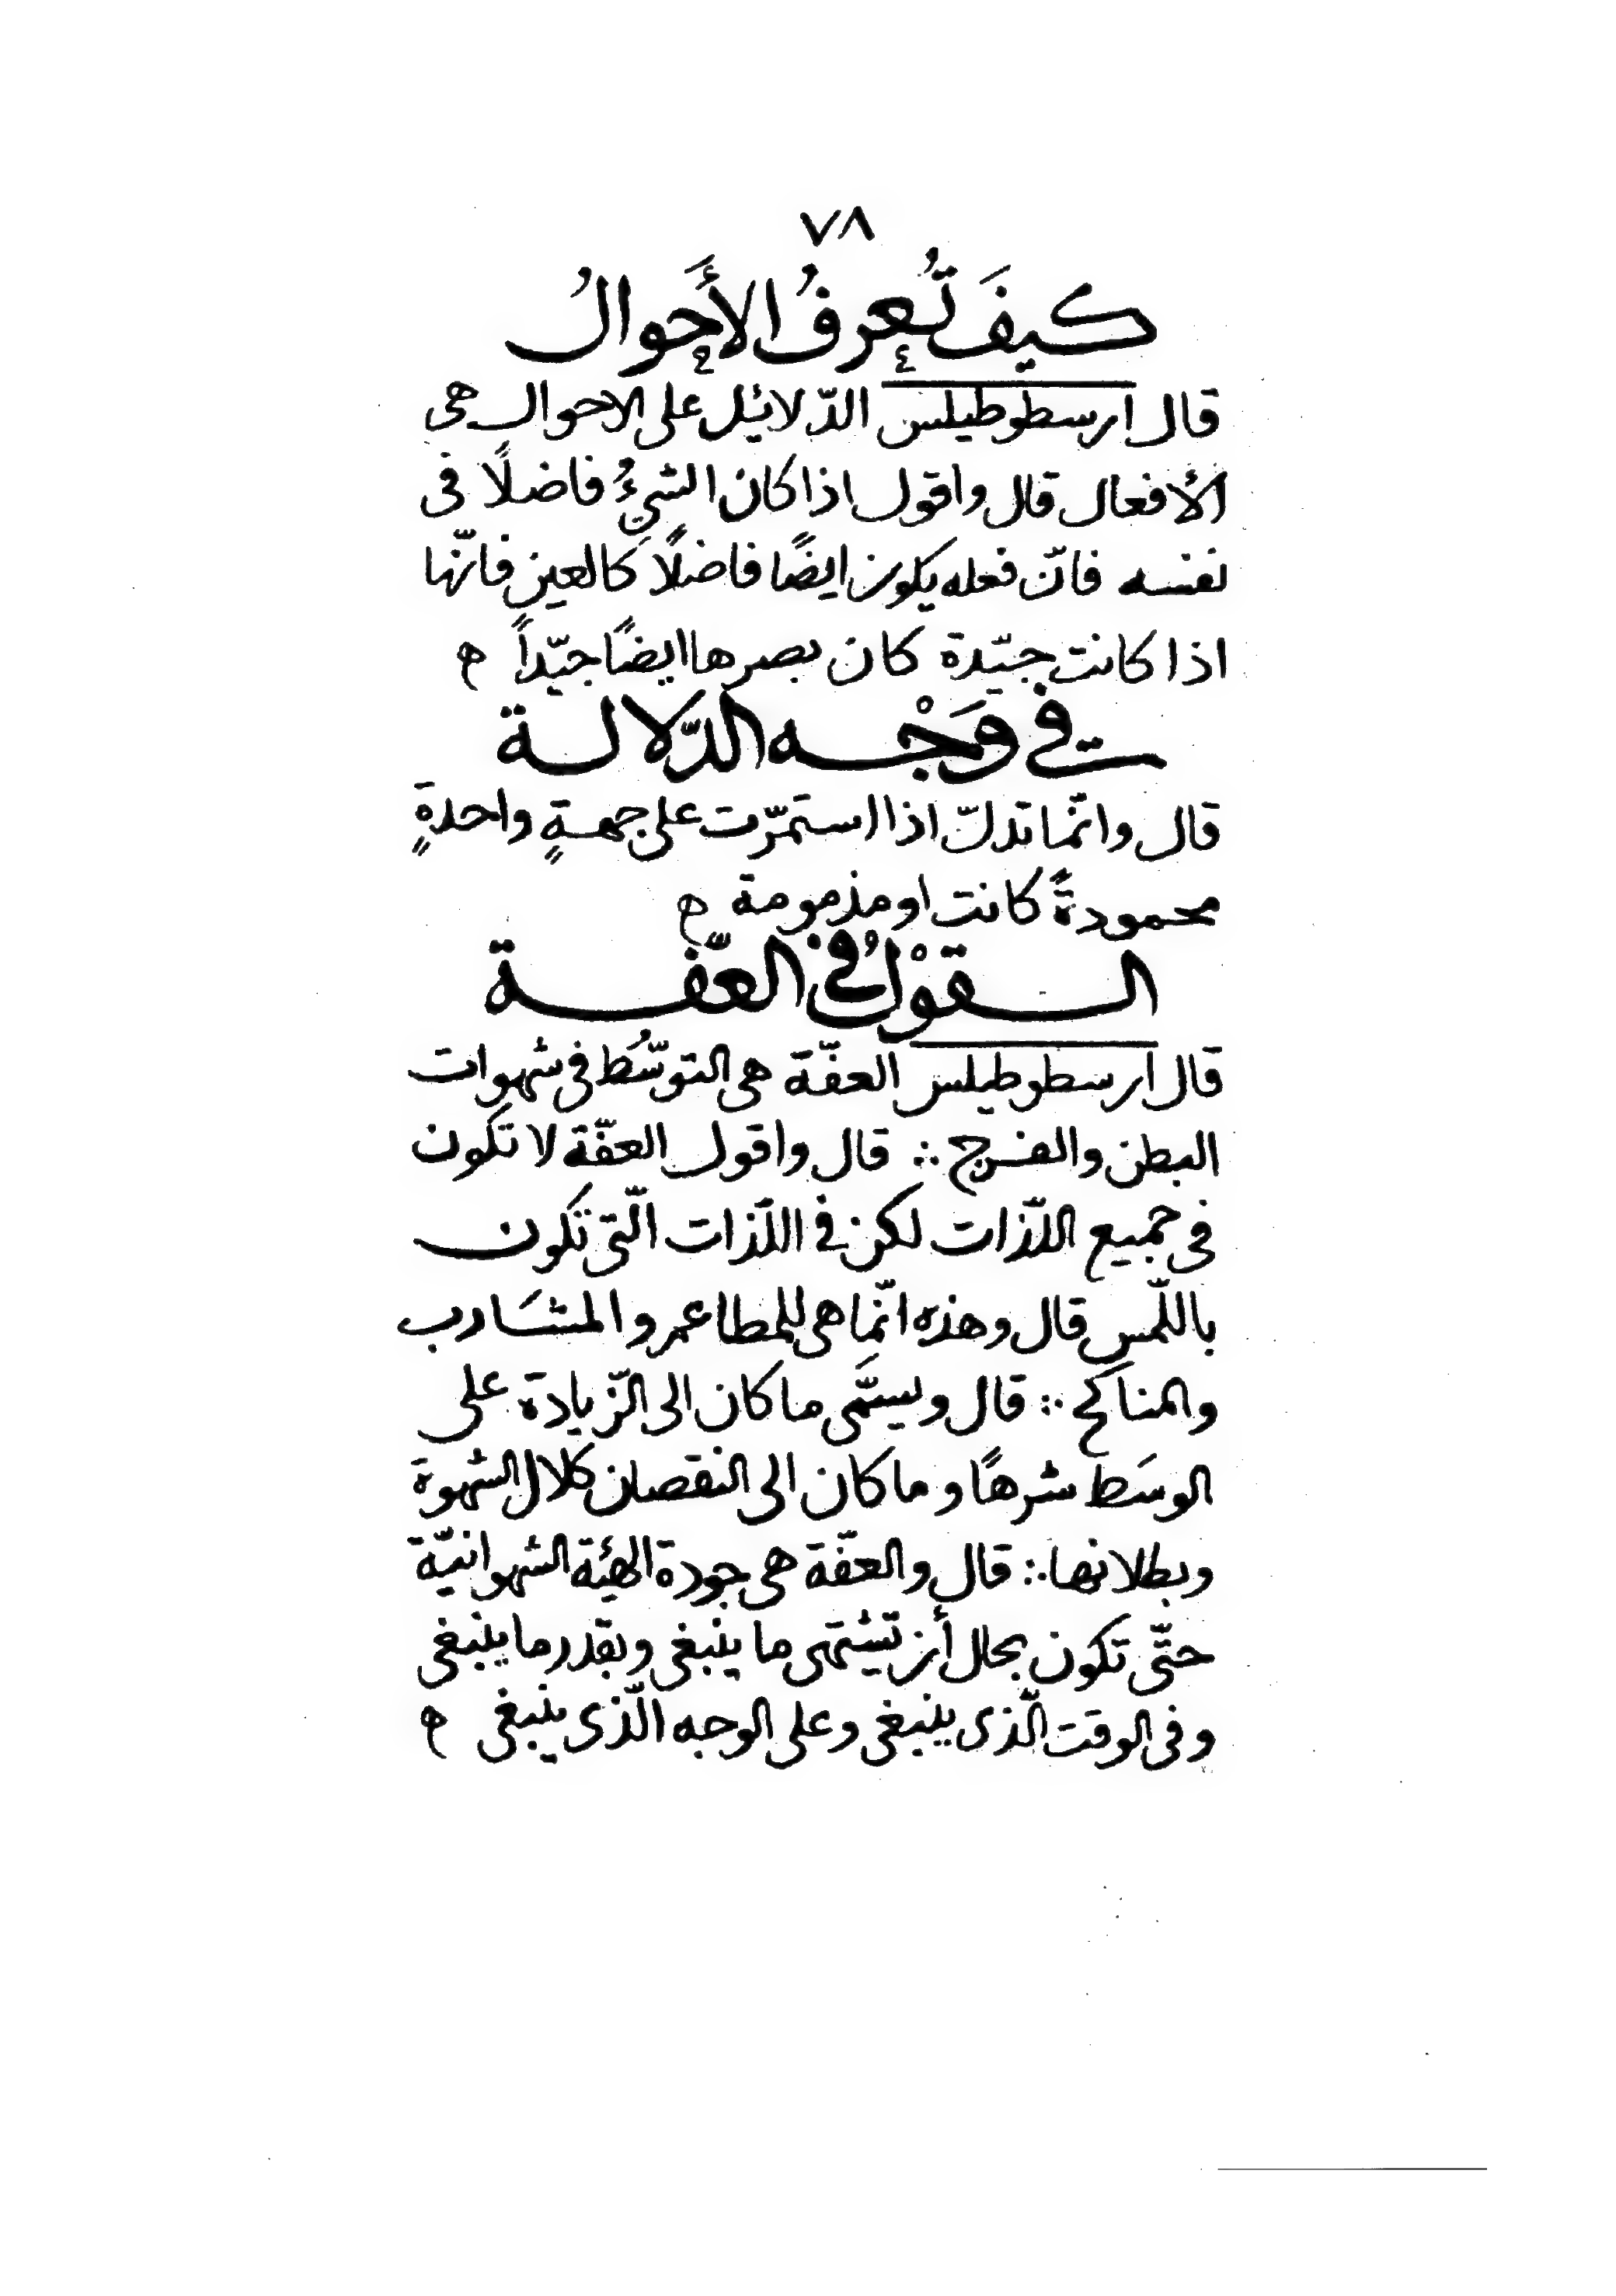 ٧٨
كيفَ تُعرفُ الأَحوالُ
قال ارسطوطيلس الدّلائيل على الاحوال هى
الأفعال قال واقول اذا كان الشيءُ فاضلًا فى
نفسه فانّ فعله يكون ايضًا فاضلًا كالعين فانّها
اذا كانت جيّدة كان بصرها ايضًا جيّداً ه
فى وَجْه الدّلالة
قال وانّما تدلّ اذا استمرّت على جهةٍ واحدةٍ
محمودةً كانت او مذمومة ه
القوْلُ فى العفّة
قال ارسطوطيلس العفّة هى التوسُّط فى شهوات
البطن والفرج ∴ قال واقول العفّة لا تكون
فى جميع اللّذات لكن فى اللّذات الّتى تكون
باللّمس قال وهذه انّما هى للمطاعم والمشَارب
والمناكح ∴ قال ويسمَّى ما كان الى الزّيادة على
الوسَط شرهًا وما كان الى النقصان كلال الشهوة
وبطلانها ∴ قال والعفّة هى جودة الهيئة الشهوانيّة
حتّى تكون بحال أن تشتهى ما ينبغى وبقدر ما ينبغى
وفى الوقت الّذى ينبغى وعلى الوجه الّذى ينبغى ه